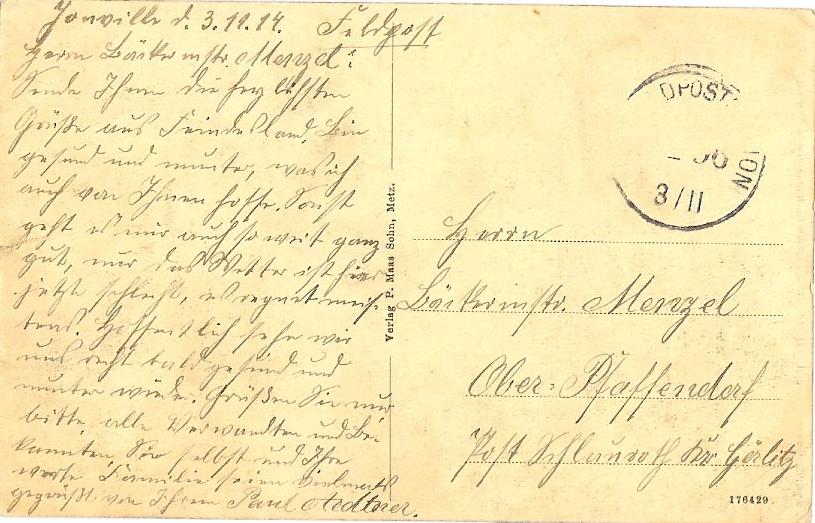 Jonville d. 3.11.14. Feldpost
Herrn Bäckermstr. Menzel!
Sende Ihnen die herzlichsten
Grüße aus Feindesland. Bin
gesund und munter, was ich
auch von Ihnen hoffe. Sonst
geht es mir auch so weit ganz
gut, nur das Wetter ist hier
jetzt schlecht, es regnet meis-
tens. Hoffentlich sehn wir
uns recht bald gesund und
munter wieder. Grüßen Sie mir
bitte alle Verwandten und Be-
kannten, Sie selbst und Ihre
werte Familie seien vielmals
gegrüßt von Ihrem Paul
Verlag P. Maas Sohn, Metz.
DPOST
3/11
Herrn
Bäckermstr. Menzel
Ober-Pfaffendorf
Post Schlauroth Kr. Görlitz
176429